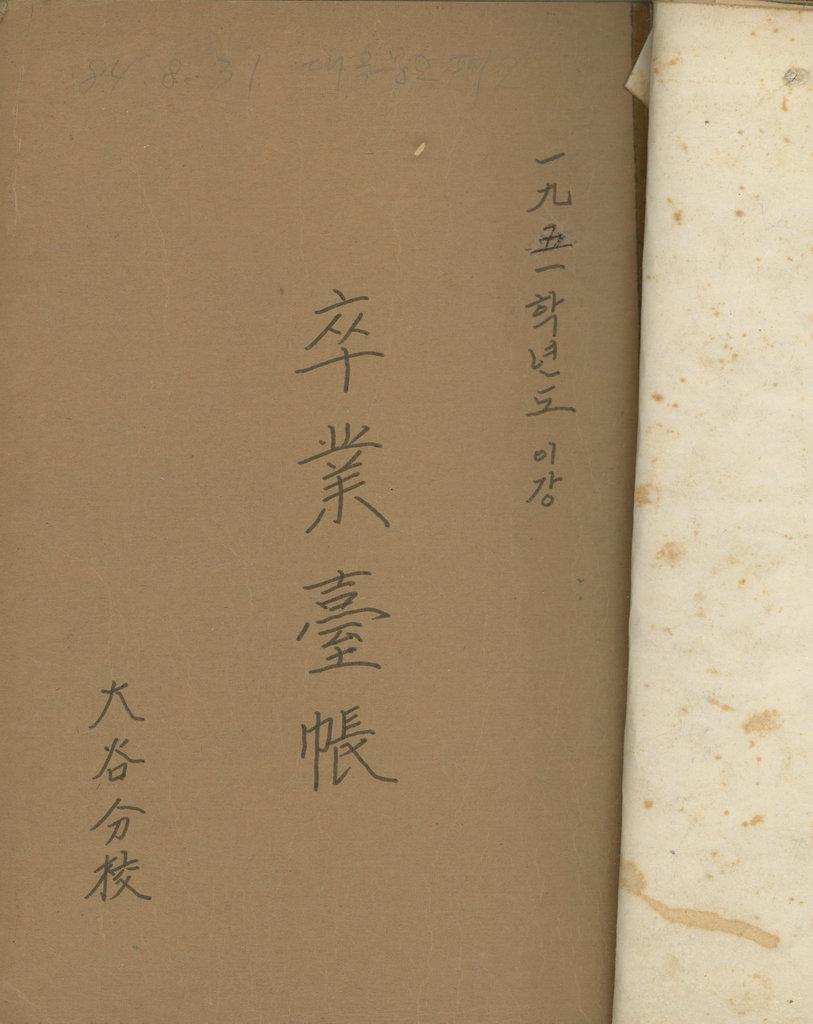 84. 8. 31
一九五一학년도 이강
卒業臺帳
大谷分校